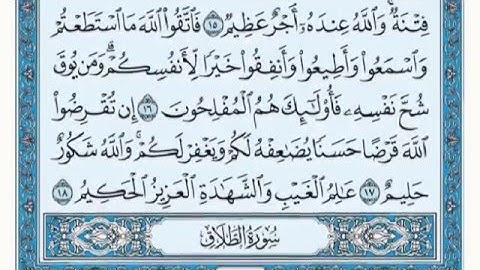 فِتْنَةٌ ۚ وَٱللَّهُ عِندَهُۥٓ أَجْرٌ عَظِيمٌ ١٥ فَٱتَّقُوا۟ ٱللَّهَ مَا ٱسْتَطَعْتُمْ
وَٱسْمَعُوا۟ وَأَطِيعُوا۟ وَأَنفِقُوا۟ خَيْرًا لِّأَنفُسِكُمْ ۗ وَمَن يُوقَ
شُحَّ نَفْسِهِۦ فَأُو۟لَـٰٓئِكَ هُمُ ٱلْمُفْلِحُونَ ١٦ إِن تُقْرِضُوا۟
ٱللَّهَ قَرْضًا حَسَنًا يُضَـٰعِفْهُ لَكُمْ وَيَغْفِرْ لَكُمْ ۚ وَٱللَّهُ شَكُورٌ
حَلِيمٌ ١٧ عَـٰلِمُ ٱلْغَيْبِ وَٱلشَّهَـٰدَةِ ٱلْعَزِيزُ ٱلْحَكِيمُ ١٨
سُورَةُ ٱلطَّلَاقِ